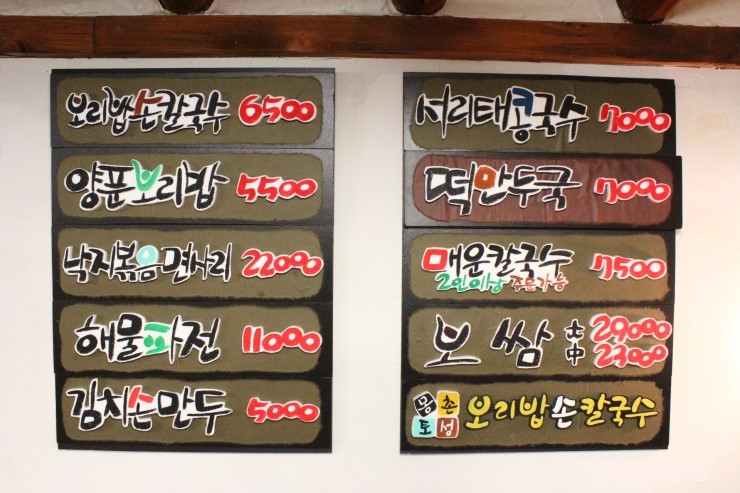 오리밥손칼국수 6500
양푼보리밥 5500
낙지볶음면사리 22000
해물파전 11000
김치손만두 5000
서리태콩국수 7000
떡만두국 7000
매운칼국수 7500
2인이상 주문가능
보쌈 大 29000
中 23000
몽촌토성 오리밥손칼국수